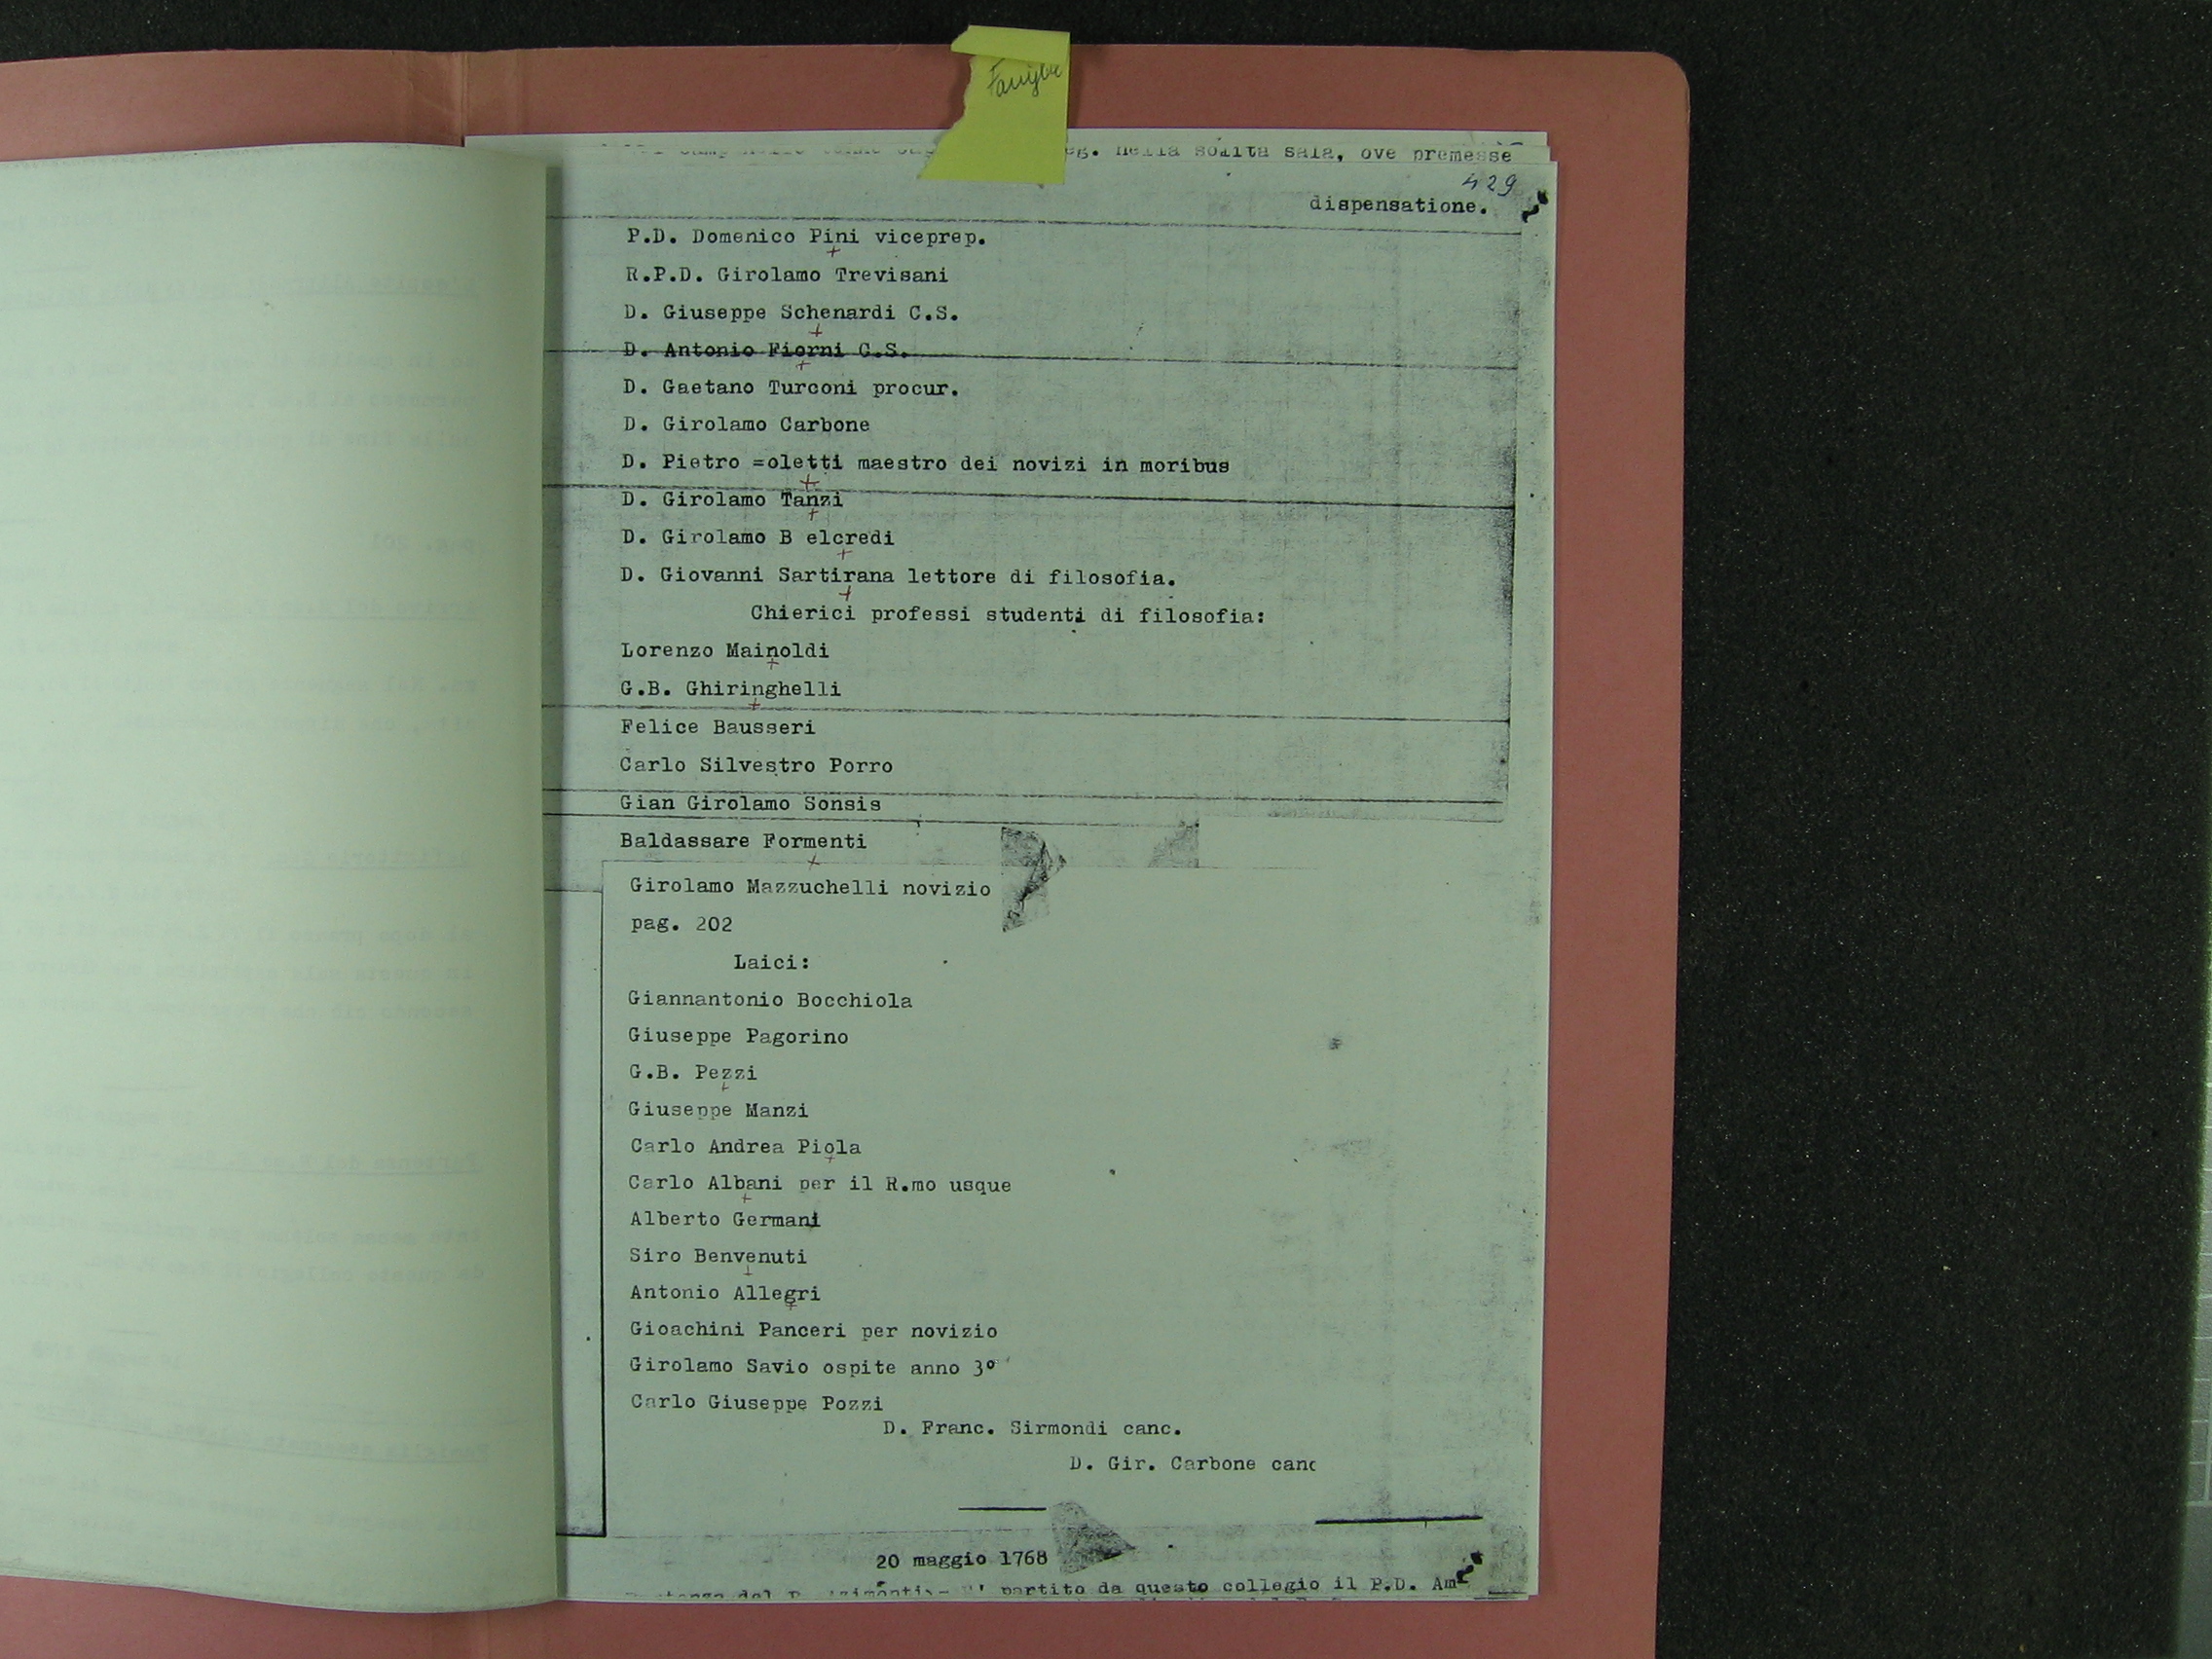 Famiglie
nella solita sala, ove premesse
429
dispensatione.
P.D. Domenico Pini viceprep.
R.P.D. Girolamo Trevisani
D. Giuseppe Schenardi C.S.
D. Antonio Fiorni C.S.
D. Gaetano Turconi procur.
D. Girolamo Carbone
D. Pietro =oletti maestro dei novizi in moribus
D. Girolamo Tanzi
D. Girolamo B elcredi
D. Giovanni Sartirana lettore di filosofia.
Chierici professi studenti di filosofia:
Lorenzo Mainoldi
G.B. Ghiringhelli
Felice Bausseri
Carlo Silvestro Porro
Gian Girolamo Sonsis
Baldassare Formenti
Girolamo Mazzuchelli novizio
pag. 202
Laici:
Giannantonio Bocchiola
Giuseppe Pagorino
G.B. Pezzi
Giuseppe Manzi
Carlo Andrea Piola
Carlo Albani per il R.mo usque
Alberto Germani
Siro Benvenuti
Antonio Allegri
Gioachini Panceri per novizio
Girolamo Savio ospite anno 3º
Carlo Giuseppe Pozzi
D. Franc. Sirmondi canc.
D. Gir. Carbone canc
20 maggio 1768
partito da questo collegio il P.D. Am